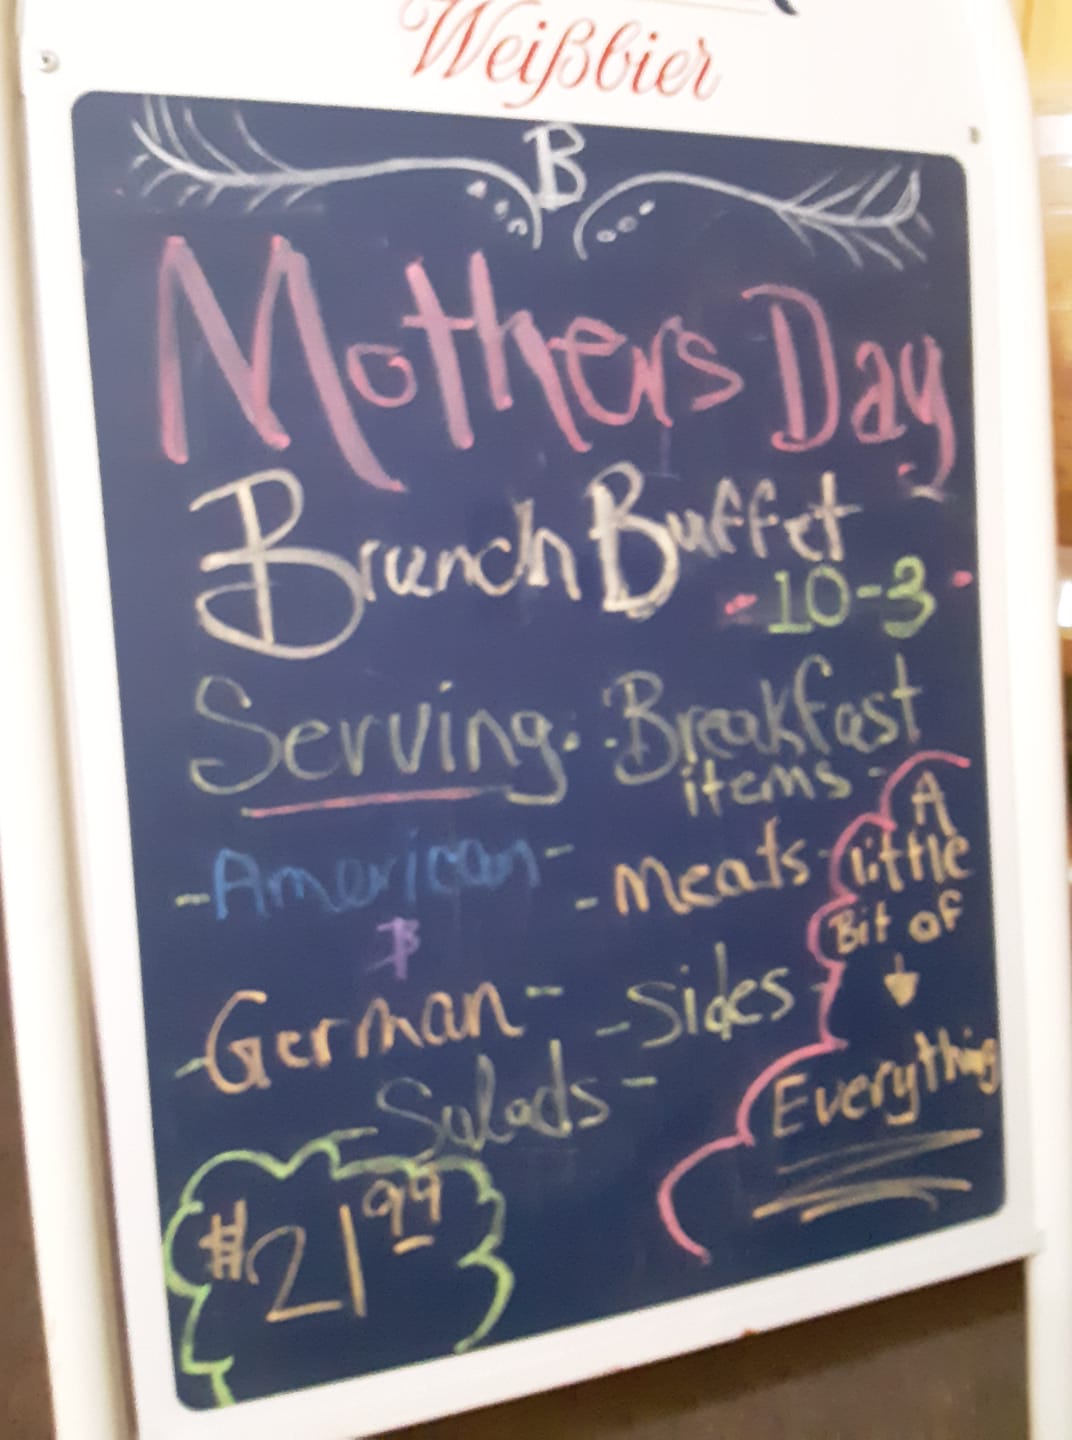 Weißbier
B
Mothers Day
Brunch Buffet
- 10-3 -
Serving: - Breakfast
items -
- American -
- meats -
&
- German -
- Sides -
Salads -
A
little
Bit of
Everything
$21.99